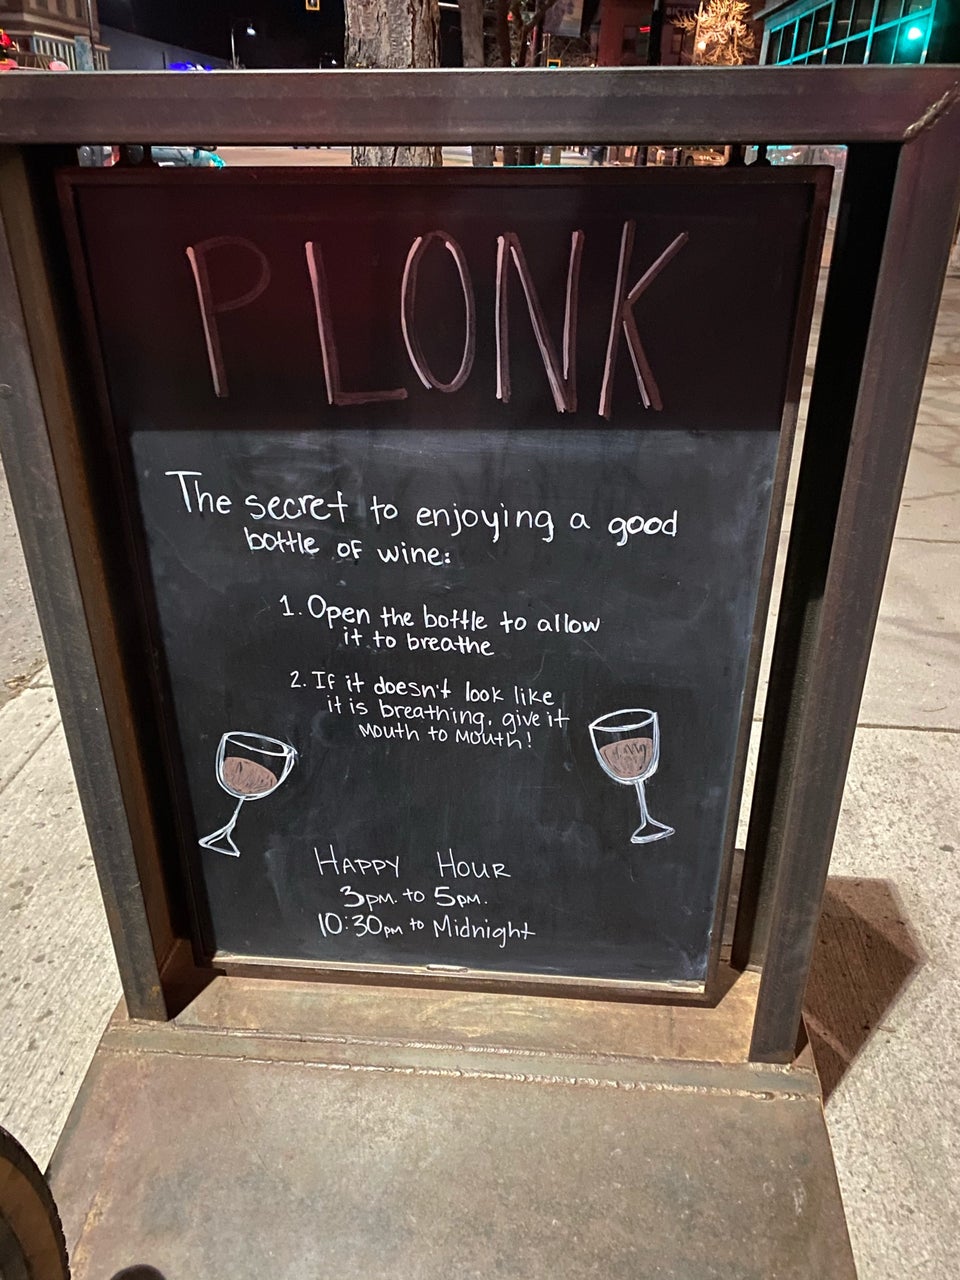 PLONK
The secret to enjoying a good
bottle of wine:
1. Open the bottle to allow
it to breathe
2. If it doesn't look like
it is breathing, give it
mouth to mouth!
HAPPY HOUR
3pm. to 5pm.
10:30pm to Midnight